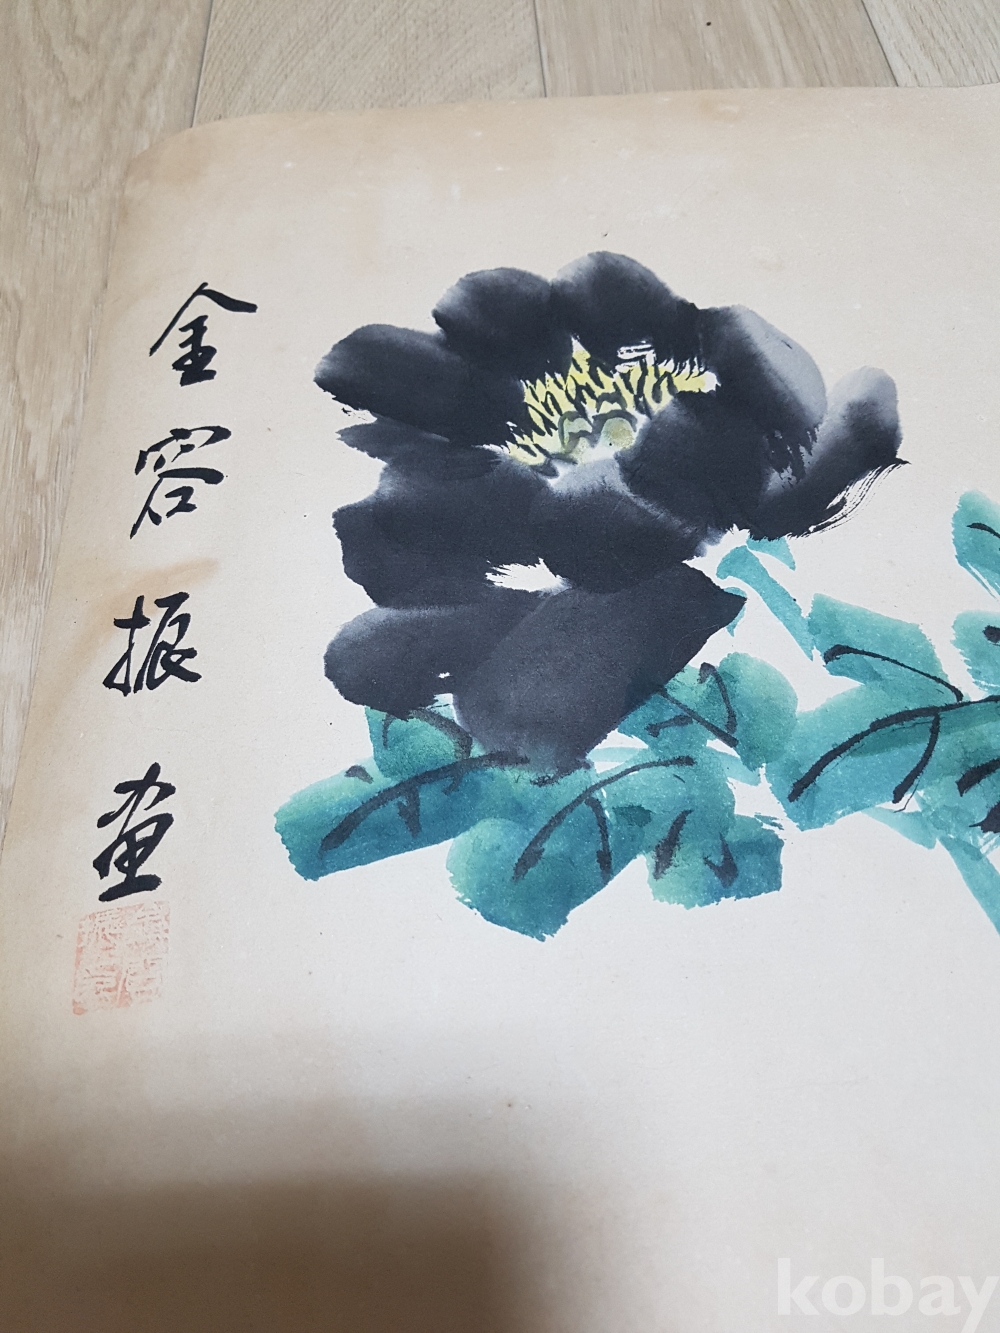 金容振畫
kobay